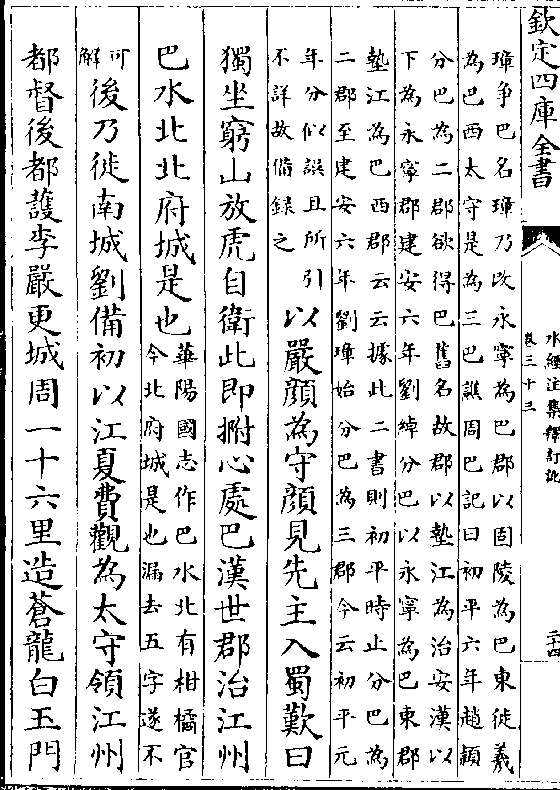 欽定四庫全書
水經注集釋訂訛
卷三十三
璋爭巴名璋乃改永寧為巴郡以固陵為巴東徙羲
為巴西太守是為三巴譙周巴記曰初平六年趙頴
分巴為二郡欲得巴舊名故郡以墊江為治安漢以
下為永寧郡建安六年劉綽分巴以永寧為巴東郡
墊江為巴西郡云云據此二書則初平時止分巴為
二郡至建安六年劉璋始分巴為三郡今云初平元
年分似誤且所引
不詳故備録之
以嚴顔為守顔見先主入蜀歎曰
獨坐窮山放虎自衛此即拊心處巴漢世郡治江州
巴水北北府城是也
華陽國志作巴水北有柑橘官
今北府城是也漏去五字遂不
可
解
後乃徙南城劉備初以江夏費觀為太守領江州
都督後都護李嚴更城周一十六里造蒼龍白玉門